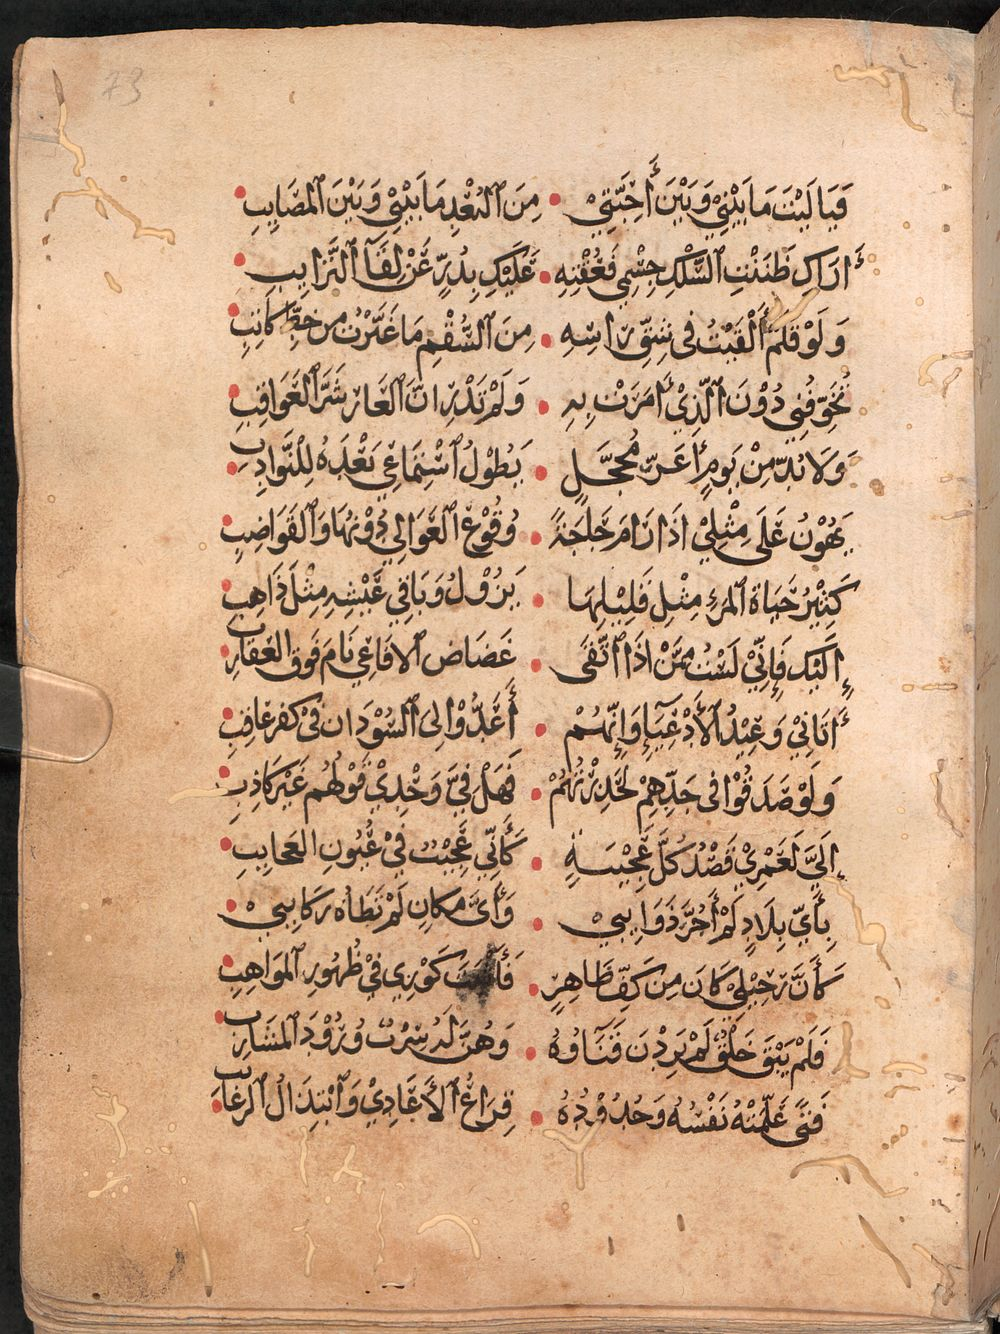 73
فَيَا لَيْتَ مَا بَيْنِيْ وَبَيْنَ أَحِبَّتِيْ • مِنَ ٱلبُعْدِ مَا بَيْنِيْ وَبَيْنَ ٱلمَصَايِبِ
أَرَاكِ ظَنَنْتِ ٱلسِّلْكَ جِسْمِي فَعُقْتِهِ • عَلَيْكِ بِدُرٍّ عَنْ لِقَآءِ ٱلتَّرَايِبِ
وَلَوْ قَلَمٌ أُلْقِيْتُ فِي شِقِّ رَاسِهِ • مِنَ ٱلسُّقْمِ مَا غَيَّرْتُ مِن خَطِّ كَاتِبِ
تُخَوِّفُنِي دُوْنَ ٱلَّذِيْ أَمَرَتْ بِهِ • وَلَمْ تَدْرِ انَّ ٱلعَارَ شَرُّ ٱلعَوَاقِبِ
وَلَا بُدَّ مِنْ يَوْمٍ أَغَرَّ مُحَجَّلٍ • يَطُوْلُ ٱسْتِمَاعِي بَعْدَهُ لِلنَّوَادِبِ
يَهُوْنُ عَلَى مِثْلِيْ اذَا رَامَ حَاجَةً • وُقُوْعُ ٱلعَوَالِي دُوْنَهَا وَٱلقَوَاضِبِ
كَثِيْرُ حَيَاةِ ٱلمَرْءِ مِثْلُ قَلِيْلِهَا • يَزُوْلُ وَبَاقِي عَيْشِهِ مِثْلُ ذَاهِبِ
إِلَيْكِ فَإِنِّيْ لَسْتُ مِمَّنْ اذَا ٱتَّقَى • عَضَاضَ ٱلافَاعِي نَامَ فَوقَ العَقَارِبِ
أَتَانِيْ وَعِيْدُ ٱلأَدْعِيَآءِ وَإِنَّهُمْ • أَعَدُّوْا لِيَ ٱلسُّوْدَانَ فِيْ كَفرِ عَاقِبِ
وَلَوْ صَدَقُوْا فِي جَدِّهِمْ لَحَذِرْتُهُمْ • فَهَلْ فِيَّ وَحْدِيْ قَوْلُهُم غَيْرُ كَاذِبِ
إِلَيَّ لَعَمْرِيْ قَصْدُ كُلِّ عَجِيْبَةٍ • كَأَنِّي عَجِيْبٌ فِيْ عُيُونِ العَجَايِبِ
بِأَيِّ بِلَادٍ لَمْ أَجُرَّ ذَوَايِبِيْ • وَأَيُّ مَكَانٍ لَمْ تَطَأْهُ رَكَايِبِيْ
كَأَنَّ رَحِيْلِي كَانَ مِن كَفِّ طَاهِرٍ • كَوْرِي فِيْ ظُهُورِ ٱلمَوَاهِبِ
فَلَمْ يَبْقَ خَلْقٌ لَمْ يَرِدْنَ فِنَآءَهُ • وَهُنَّ لَهُ شِرْبٌ وُرُوْدَ ٱلمَشَارِبِ
فَتًى عَلَّمَتْهُ نَفْسُهُ وَجُدُوْدُهُ • قِرَاعَ ٱلأَعَادِيْ وَٱبْتِذَالَ ٱلرَّغَايِبِ